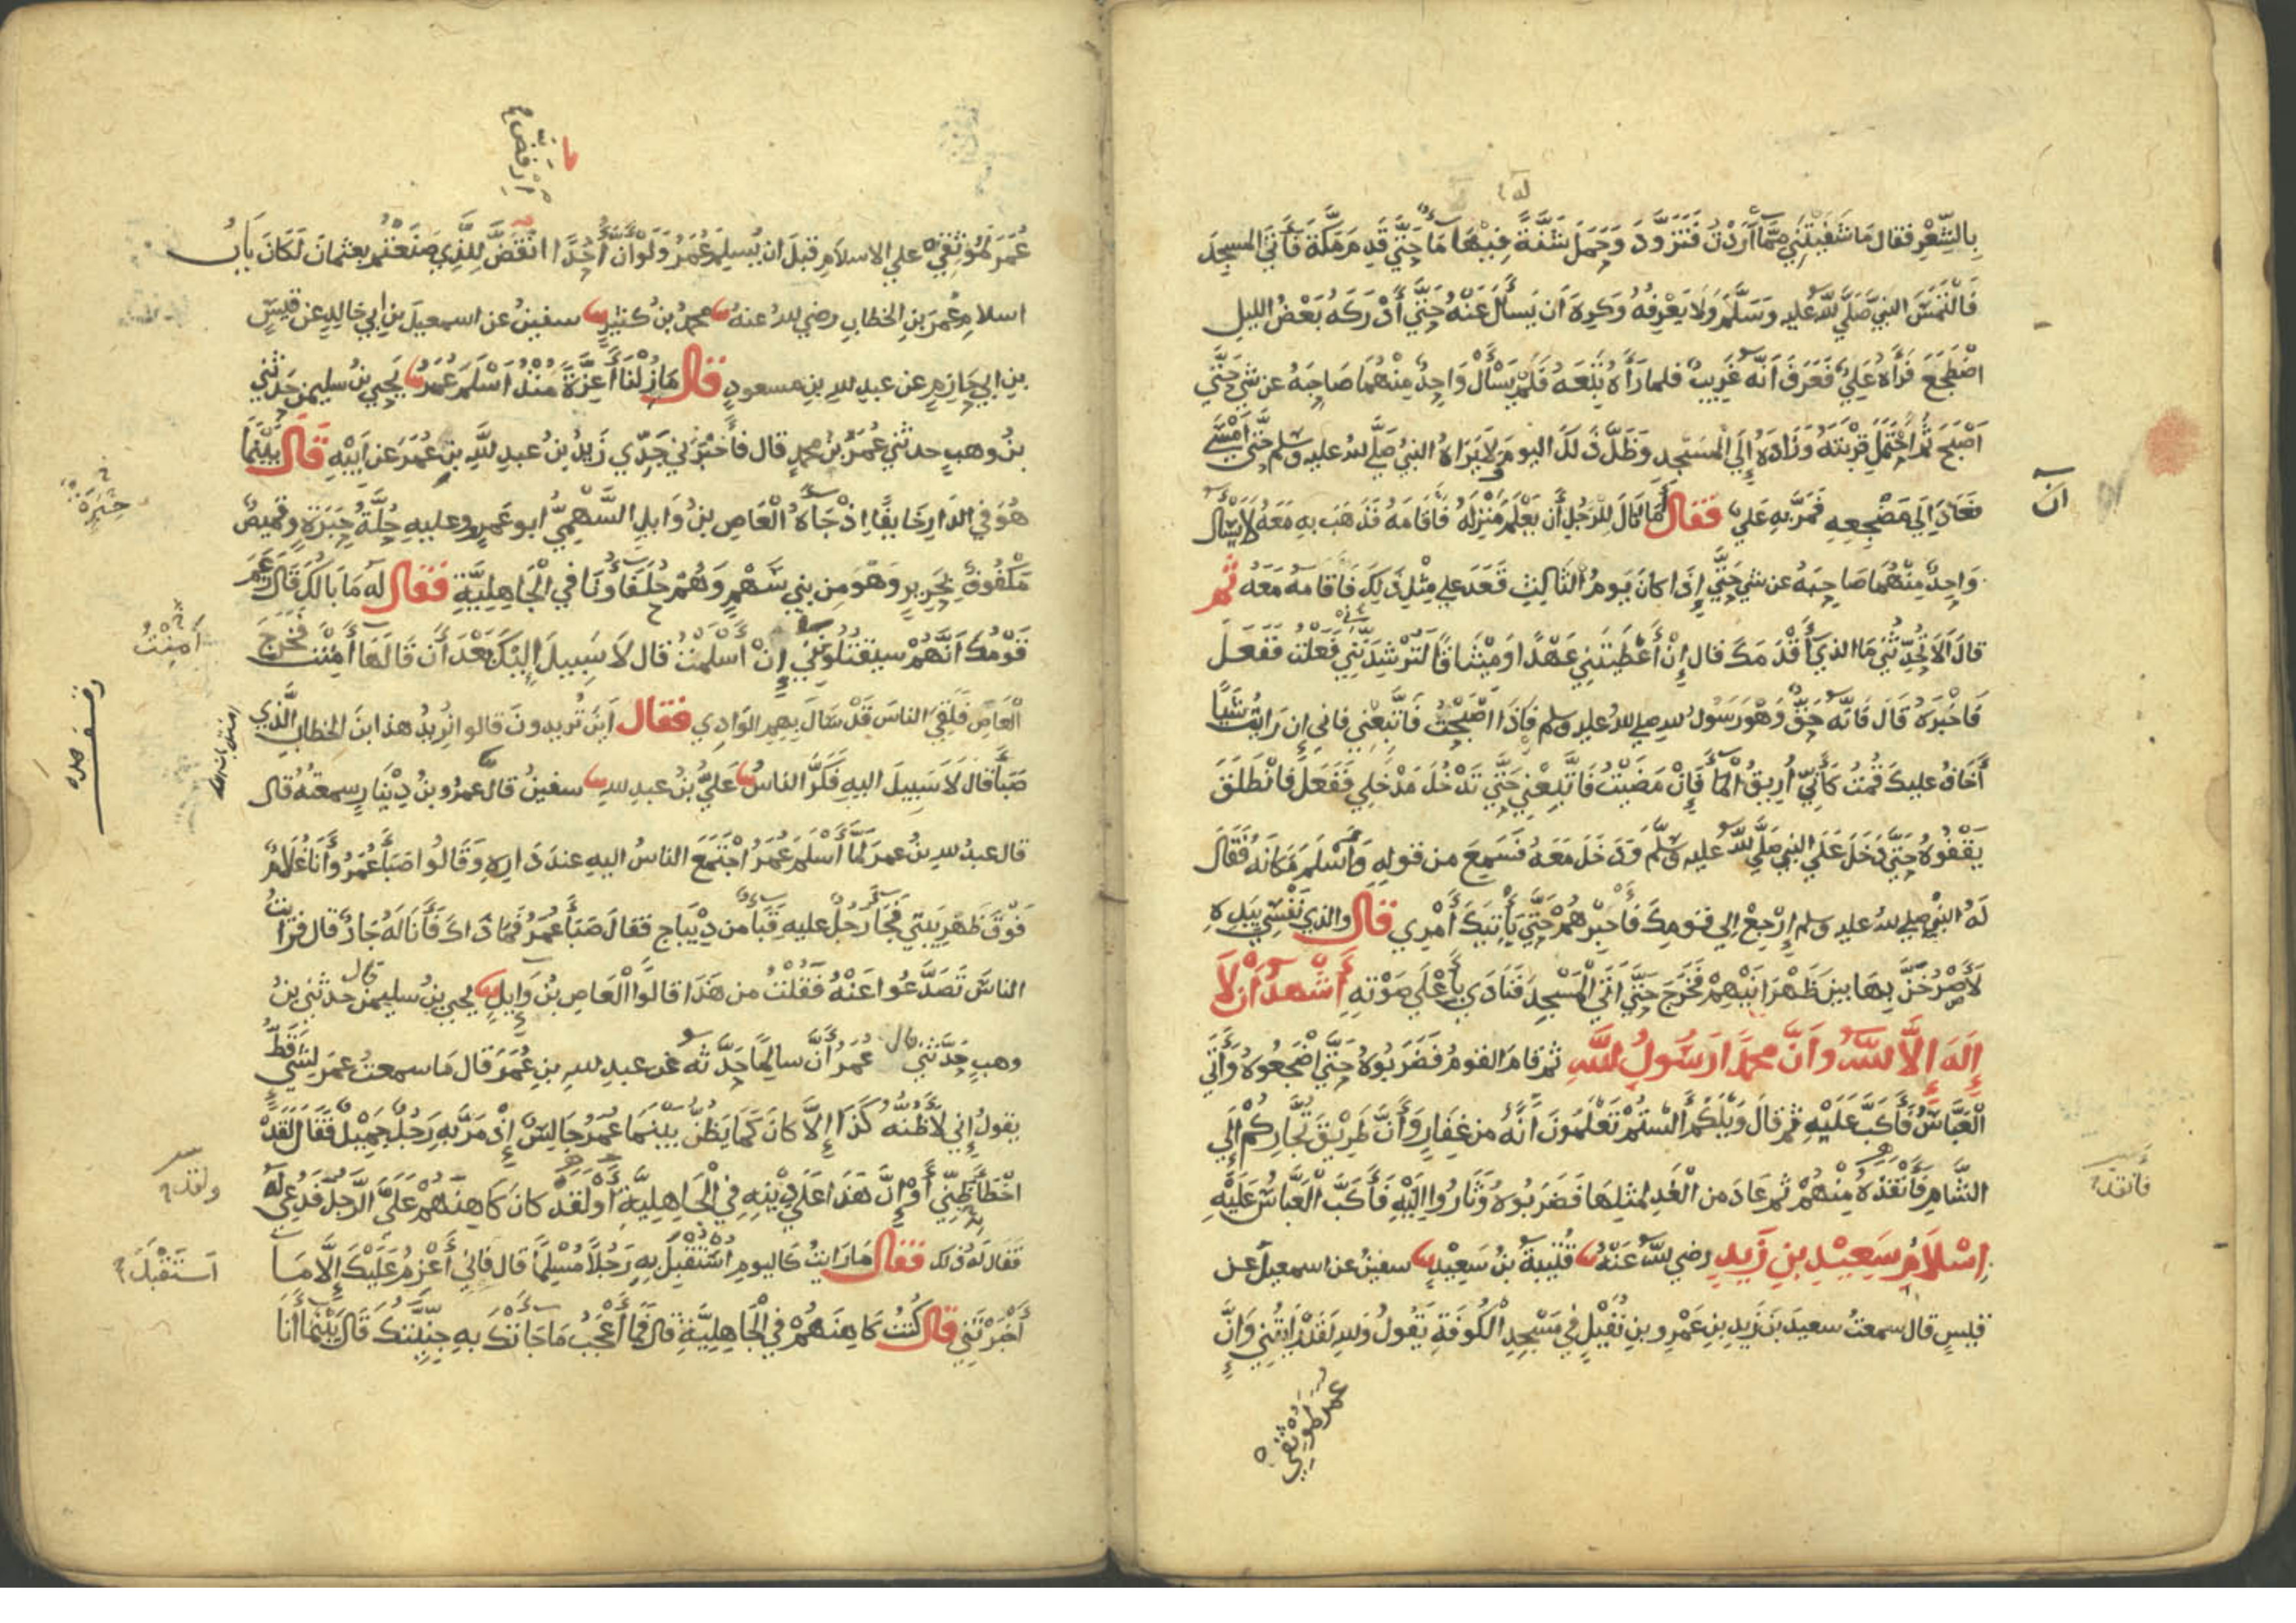 بِالشِّعْرِ فقال مَا شَفَيْتَنِي مِمَّا أَرَدْتُ فَتَزَوَّدَ وَحَمَلَ شَنَّةً فِيْهَا مَا حَتَّى قَدِمَ مَكَّةَ فَأَتَى المسجِدَ
فَالْتَمَسَ النبيَّ صَلَّى اللهُ عليه وَسَلَّمَ وَلَا يَعْرِفُهُ وَكَرِهَ أن يَسأَلَ عَنْهُ حَتَّى أَدْرَكَهُ بَعْضُ الليل
اضْطَجَعَ فَرَأَهُ عَلِيٌّ فَعَرَفَ أَنَّهُ غَرِيبٌ فلما رَأَهُ تَبِعَهُ فَلَمْ يَسْأَلْ وَاحِدٌ مِنْهُمَا صَاحِبَهُ عن شَيٍ حَتَّى
أَصْبَحَ ثُمَّ احْتَمَلَ قِرْبَتَهُ وَزَادَهُ إِلَى الْمَسْجِدِ وَظَلَّ ذَلَكَ اليومَ وَلَا يَرَاهُ النبيُّ صَلَّى اللهُ عليه وسلم حَتَّى أَمْسَى
فَعَادَ إِلَى مَضْجِعِهِ فَمَرَّ بِهِ عَلِيٌّ فَقَالَ أَمَا نَالَ لِلرَّجُلِ أَن يَعْلَمَ مَنْزِلَهُ فَأَقَامَهُ فَذَهَبَ بِهِ مَعَهُ لَا يَسْأَل
وَاحِدٌ مِنْهُمَا صَاحِبَهُ عن شيٍ حَتَّى إِذَا كانَ يَومُ الثَّالِثِ قَعَدَ عَلِي مِثْلَ ذَلِكَ فَأَقَامهُ مَعَهُ ثُم
قالَ أَلَا تُحَدِّثُنِي مَا الذي أَقْدَمَكَ قال إِنْ أَعْطَيْتَنِي عَهْدًا وَمِيْثَاقًا لَتُرْشِدَنَّنِي فَعَلْتُ فَفَعَلَ
فَأَخْبَرَهُ قَالَ فَإِنَّهُ حَقٌّ وَهُوَ رَسُولُ اللهِ صلى اللهُ عليه وسلم فَإِذَا أَصْبَحْتَ فَاتَّبِعْنِي فَإِنِّي إِن رَأَيْتُ شَيًا
أَخَافُ عليكَ قُمْتُ كَأَنِّي أُرِيقُ الْمَا فَإِنْ مَضَيْتُ فَاتَّبِعْنِي حَتَّى تَدْخُلَ مَدْخَلِي فَفَعَلَ فانْطَلَقَ
يَقْفُوهُ حَتَّى دَخَلَ عَلَى النبي صَلَّى اللهُ عليه وَسلَّمَ وَدَخَلَ مَعَهُ فَسَمِعَ من قولِهِ وَأَسْلَمَ مَكَانَهُ فَقَالَ
لَهُ النبيُّ صلى اللهُ عليه وسلم ارْجِعْ إلى قومِكَ فَأَخْبِرْهُمْ حَتَّى يَأْتِيَكَ أَمْرِي قَالَ والذي نَفْسِي بِيَدِهِ
لَأَصْرُخَنَّ بِهَا بين ظَهْرَانَيْهِمْ فَخَرَجَ حَتَّى أَتَى الْمَسْجِدَ فَنَادَى بِأَعْلَى صَوْتِهِ أَشْهَدُ أَنْ لَا
إِلَهَ إِلَّا اللهُ وَأَنَّ محمدًا رَسُولُ اللهِ ثم قام القومُ فَضَرَبُوهُ حَتَّى أَضْجَعُوهُ وَأَتَى
الْعَبَّاسُ فَأَكَبَّ عَلَيْهِ ثم قالَ وَيْلَكُمْ أَلَسْتُمْ تَعْلَمُونَ أَنَّهُ من غِفَارٍ وَأَنَّ طَرِيْقَ تُجَّارِكُمْ إِلَى
الشَّامِ فَأَنْقَذَهُ مِنْهُمْ ثم عَادَ من الْغَدِ لمثلِهَا فَضَرَبُوهُ وَثَارُوا إِلَيْهِ فَأَكَبَّ الْعَبَّاسُ عَلَيْهِ
إِسْلَامُ سَعِيْدِ بنِ زَيدٍ رضي اللهُ عَنْهُ قُتَيبةُ بنُ سَعِيْدٍ سفينُ عن اسمعيلَ عن
قيسٍ قال سمعتُ سعيدَ بنَ زَيدِ بنِ عَمْرِو بنِ نُفَيْلٍ في مَسْجِدِ الْكُوفَةِ يَقُولُ وَاللهِ لَقَدْ رَأَيْتُنِي وَإِنَّ
عمر لموثقي
له
ان
فانقذه
عُمَرَ لَمُوثِقِيْ على الاسلامِ قبلَ أن يُسلِمَ عُمَرُ وَلَوْ أَنَّ أُحُدًا انْقَضَّ لِلَّذِي صَنَعْتُمْ بعثمانَ لَكَانَ بَابُ
اسلامِ عُمَرَ بنِ الخطابِ رضي اللهُ عنهُ محمدُ بنُ كثيرٍ سفينُ عن اسمعيلَ بنِ ابي خالدٍ عن قيسِ
بنِ ابي حَازِمٍ عن عبدِ اللهِ بنِ مسعودٍ قَالَ مَا زِلْنَا أَعِزَّةً مُنْذُ أَسْلَمَ عُمَرُ يَحيى بنُ سليمن حَدثني
بنُ وهبٍ حدثني عُمَرُ بنُ محمدٍ قال فأَخْبَرَني جَدِّي زَيدُ بنُ عبدِ اللهِ بنِ عُمَرَ عن أَبيْهِ قَالَ بَيْنَمَا
هُوَ في الدارِ خَائِفًا إِذْ جَاهُ الْعَاصِ بنُ وَايلٍ السَّهْمِيُّ ابو عَمرٍو وعليهِ حُلَّةُ حِبَرَةٍ وقميصٌ
مَكْفُوفٌ بِحَرِيرٍ وَهُوَ مِن بني سَهْمٍ وَهُمْ حُلَفَاؤُنَا في الْجَاهِلِيَّةِ فَقَالَ لَه مَا بَالُكَ قَالَ زَعَمَ
قَوْمُكَ أَنَّهُمْ سيقتُلُونَنِي إِنْ أَسْلَمْتُ قال لا سَبِيلَ إِلَيْكَ بَعْدَ أَن قَالَهَا أَمِنْتُ فَخَرَجَ
الْعَاصِ فَلَقِيَ الناسَ قَدْ سَالَ بِهِمِ الوَادِي فَقَالَ أَينَ تُريدونَ قالوا نُرِيدُ هذا ابنَ الخطابِ الَّذي
صَبَأَ قال لَا سَبِيلَ إليهِ فَكَرَّ الناسُ عَلِيُّ بنُ عبدِ اللهِ سفينُ قال عمرُو بنُ دِيْنَارٍ سمعتُهُ قال
قال عبدُ اللهِ بنُ عمرَ لَمَّا أَسْلَمَ عُمَرُ اجْتَمَعَ الناسُ اليهِ عندَ دَارِهِ وَقَالُوا صَبَأَ عُمَرُ وَأَنَا غُلَامٌ
فَوْقَ ظَهْرِ بَيتي فَجَا رَجُلٌ عليهِ قَبَا من دِيْبَاجٍ فقالَ صَبَأَ عُمَرُ فَمَا ذَاكَ فَأَنَا لَهُ جَارٌ قال فرأيتُ
الناسَ تَصَدَّعُوا عَنْهُ فَقُلْتُ من هَذَا قالُوا الْعَاصِ بنُ وَايلٍ يحيى بنُ سليمن قال حدثني بنُ
وهبٍ حَدَّثَني قال عُمَرُ أَنَّ سالمًا حَدَّثَهُ عن عبدِ اللهِ بنِ عُمَرَ قال مَا سمعتُ عمرَ لِشَيٍ قَطُّ
يقولُ إني لَأَظُنُّهُ كَذَا إِلَّا كانَ كَمَا يَظُنُّ بينمَا عُمَرُ جَالِسٌ إِذْ مَرَّ بِهِ رَجُلٌ جَمِيْلٌ فَقَالَ لَقَدْ
أَخْطَأَ ظَنِّي أَوْ إِنَّ هَذَا عَلَى دِيْنِهِ فِي الْجَاهِلِيَّةِ أَوْ لَقَدْ كَانَ كَاهِنَهُمْ عَلَيَّ الرَّجُلَ فَدُعِيَ لَهُ
فَقَالَ لَهُ ذَلك فَقَالَ مَا رَايتُ كَاليومِ اسْتُقْبِلَ بِهِ رَجُلًا مُسْلِمًا قال فإني أَعْزِمُ عَلَيْكَ إِلَّا مَا
أَخْبَرْتَنِي قَالَ كُنْتُ كَاهِنَهُمْ في الْجَاهِلِيَّةِ قالَ فَمَا أَعْجَبُ مَا جَاتْكَ بِهِ جِنِّيَّتُكَ قَالَ بَيْنَمَا أَنَا
ارفض
حبرة
أمنت
ولقد
استقبل